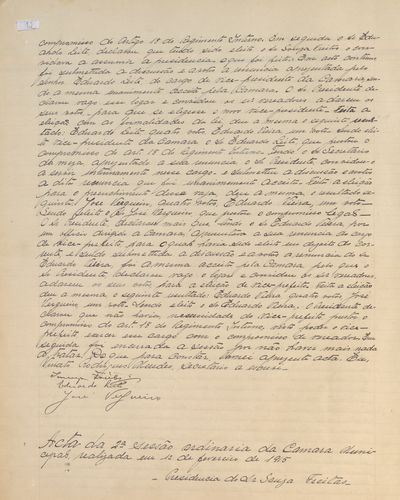 compromisso do Artigo 18 do Regimento Interno. Em seguida o Sr. Edu-
ardo Leite declarou que tendo sido eleito o Sr. Souza Freitas o con-
vidava a assumir a presidencia o que foi feito. Em acto continuo
foi submettida a discussão e a voto a renuncia apresentada pelo
senhor Eduardo Leite do cargo de vice-presidente da Camara, sen-
do a mesma unanimemente acceita pela Camara. O Sr. Presidente de-
clarou vago esse logar e convidou os srs. vereadores a darem os
seus votos para que se elegesse o novo vice-presidente. Feita a
eleição com as formalidades da lei deu a mesma o seguinte resul-
tado: Eduardo Leite quatro votos, Eduardo Vieira, um voto. Sendo eleito
vice-presidente da Camara o Sr. Eduardo Leite, que prestou o
compromisso do art. 18 do Regimento Interno. Tendo o Sr. Secretario
da mesa apresentado a sua renuncia o Sr. Presidente convidou-o
a servir interinamente nesse cargo. e submetteu a discussão e a votos
a dita renuncia que foi unanimemente acceita. Feita a eleição
para o preenchimento dessa vaga, deu a mesma o resultado se-
guinte: José Pegueiro, quatro votos, Eduardo Vieira, um voto.
Sendo eleito o Sr. José Pegueiro que prestou o compromisso legal.
O Sr. Presidente declarou mais que tendo o Sr. Eduardo Vieira, por
seu officio dirigido a Camara apresentado a sua renuncia do cargo
de vice-prefeito, para o qual havia sido eleito
submettida a discussão e a votos a renuncia do Sr.
Eduardo Vieira foi a mesma acceita pela Camara pelo que o
Sr. Presidente declarou vago o logar e convidou os Srs. vereadores
a darem os seus votos para a eleição de vice-prefeito. Feita a eleição
deu a mesma o seguinte resultado: Eduardo Vieira quatro votos, José
Pegueiro um voto. Sendo eleito o Sr. Eduardo Vieira, o Presidente de-
clarou que não havia necessidade do vice-prefeito prestar o
compromisso do art. 18 do Regimento Interno, visto poder o vice-
prefeito servir em seu cargo com o compromisso de vereador. Em
seguida foi encerrada a sessão por não haver mais nada
a tratar. Do que para constar, lavrei a presente acta. Eu,
Renato Rodrigues Guedes, secretario a escrevi.
Souza Freitas
Eduardo Leite
José Pegueiro
Acta da 2ª sessão ordinaria da Camara Muni-
cipal, realizada em 12 de fevereiro de 1915
Presidencia do Sr. Souza Freitas